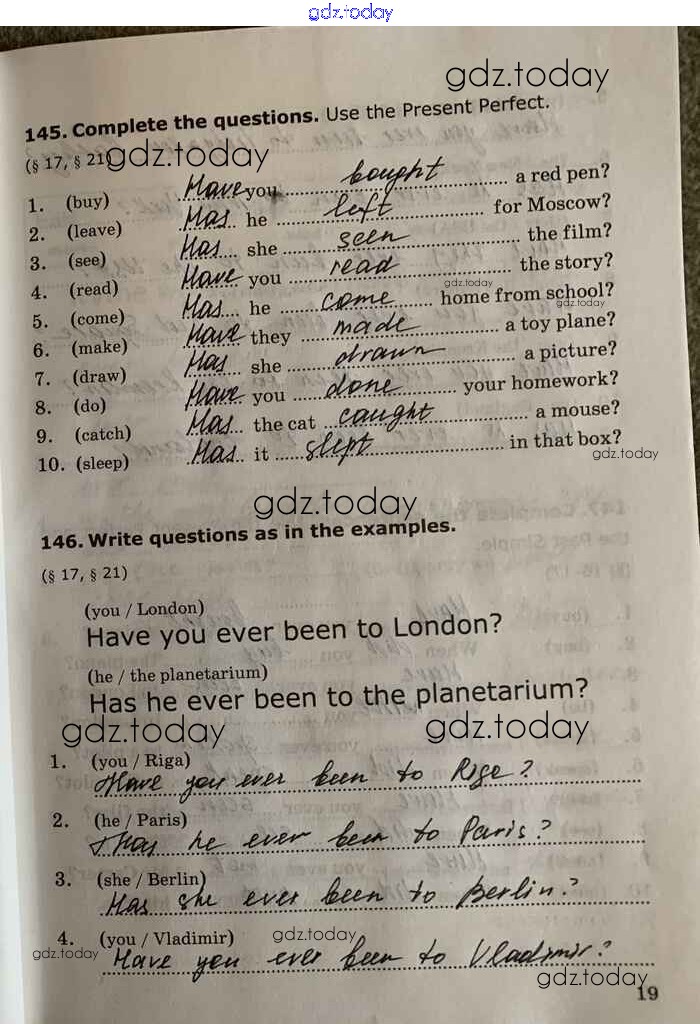 gdz.today
gdz.today
145. Complete the questions. Use the Present Perfect.
(§ 17, § 21) gdz.today
1. (buy) Have you bought a red pen?
2. (leave) Has he left for Moscow?
3. (see) Has she seen the film?
4. (read) Have you read the story?
gdz.today
5. (come) Has he come home from school?
gdz.today
6. (make) Have they made a toy plane?
7. (draw) Has she drawn a picture?
8. (do) Have you done your homework?
9. (catch) Has the cat caught a mouse?
10. (sleep) Has it slept in that box?
gdz.today
gdz.today
146. Write questions as in the examples.
(§ 17, § 21)
(you / London)
Have you ever been to London?
(he / the planetarium)
Has he ever been to the planetarium?
gdz.today gdz.today
1. (you / Riga)
Have you ever been to Riga?
2. (he / Paris)
Has he ever been to Paris?
3. (she / Berlin)
Has she ever been to Berlin?
4. (you / Vladimir) gdz.today
gdz.today
Have you ever been to Vladimir?
gdz.today
19